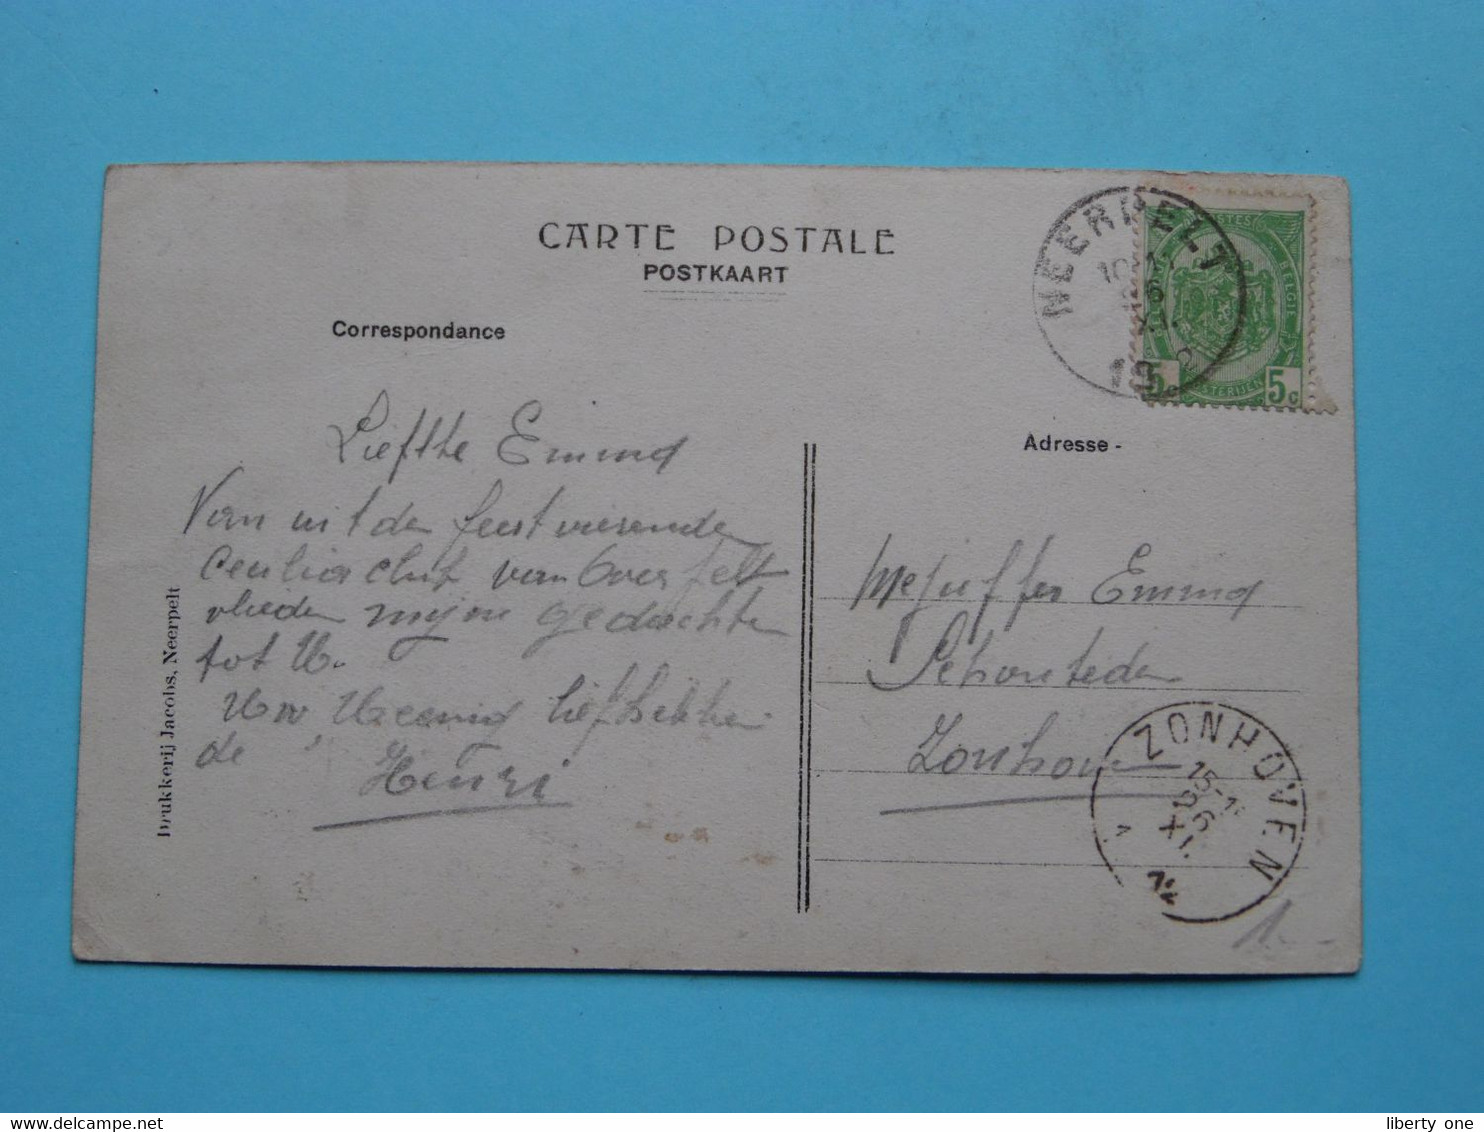 CARTE POSTALE
POSTKAART
Correspondance
Liefste Emma
Van uit de feestvierende
Cecilia club van Overpelt
vlieden mijne gedachten
tot U.
Uw U eenig liefhebben
de
Henri
Drukkerij Jacobs, Neerpelt
NEERPELT
POSTES BELGIE
5c 5c
Adresse -
Mejuffer Emma
Schouteden
Zonhoven
ZONHOVEN
15-1
XI
1.-
liberty one